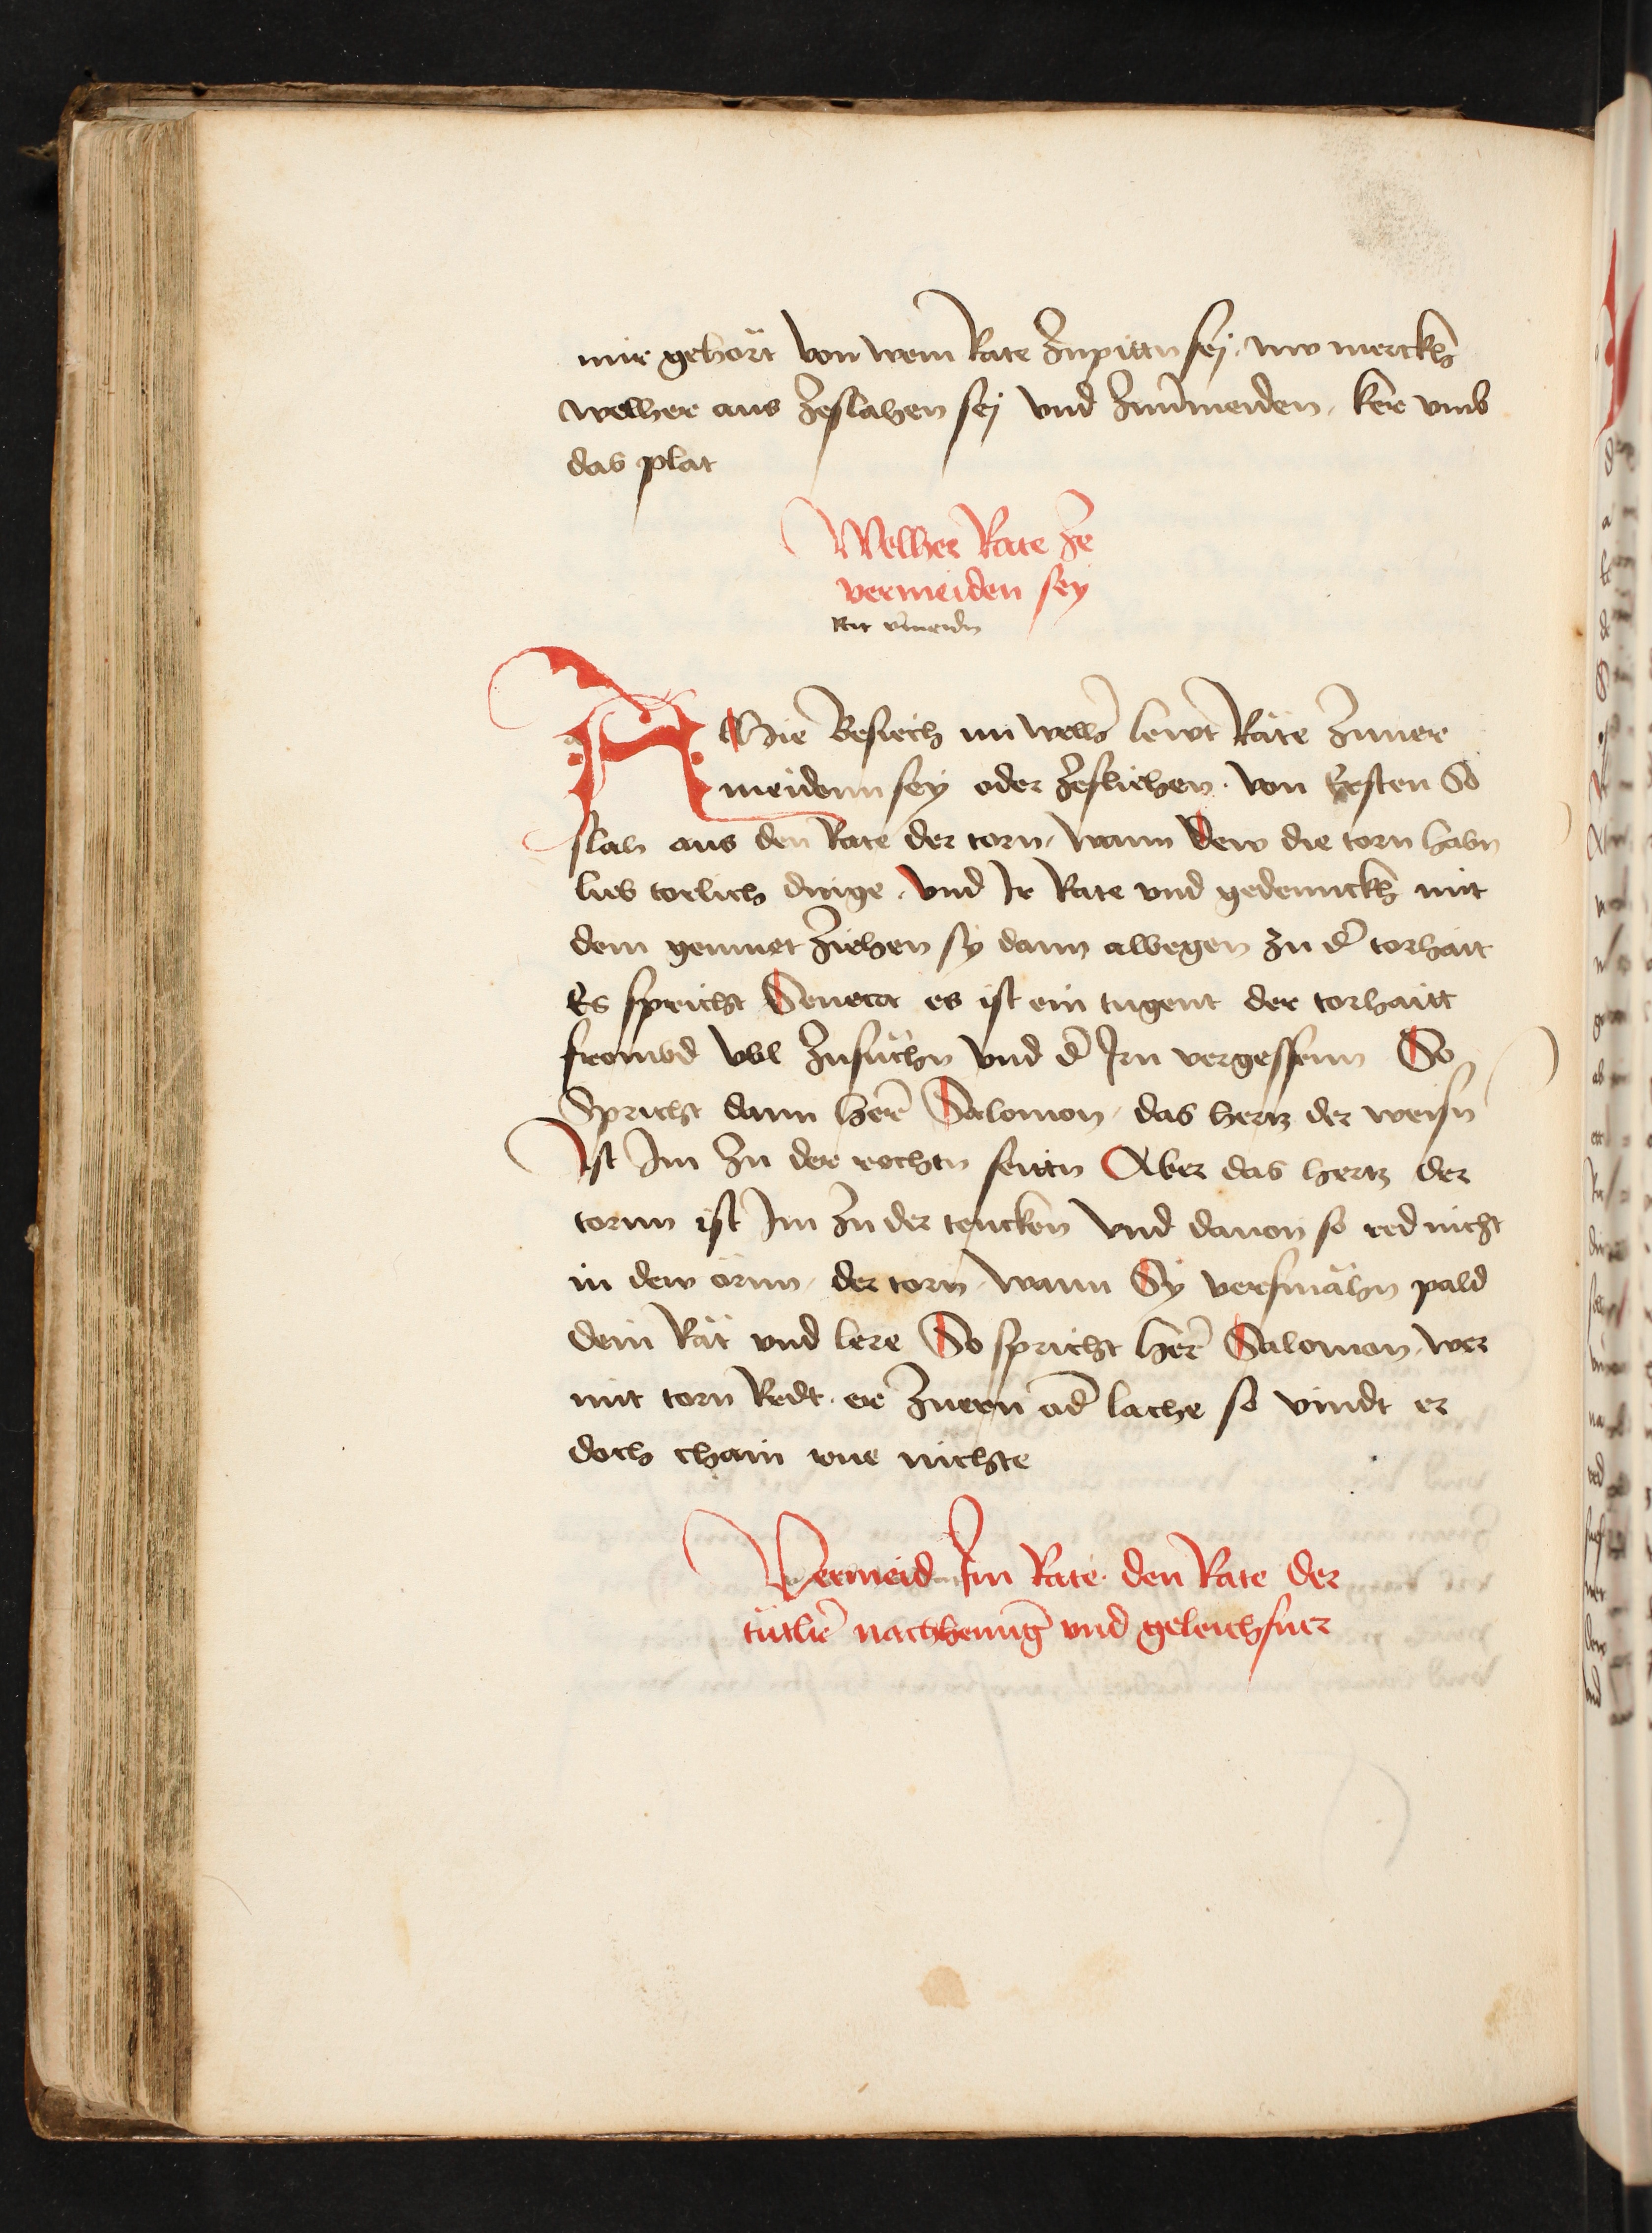 mir gehört von wem Rate zupittn sej, nw merckh
welher aus zeslahen sej vnd zuuermeiden, ker vmb
das plat
Welher Rate ze
vermeiden sey
Rat vermeidn
A Hie Besiech in welh lewt Räte zuuer
meidenn sey oder zefliehen. von Ersten So
slah aus den Rate der torn, wann dew die torn habn
lieb torlich dinge. vnd Ir Rate vnd gedennckh mit
dem gemuet ziehen sy dann albegen zu der torhait
Es spricht Seneca es ist ein tugent der torhaitt
frombd vbl zusuchn vnd der Irn vergessenn So
Spricht dann herr Salomon, das hertz der weisn
Ist Im zu der rechtn seittn Aber das hertz der
tornn ist Im zu der tencken vnd dauon so red nicht
in dew örnn, der torn, wann Sy versmähn pald
dein Rät vnd lere So spricht herr Salomon, wer
mit torn Redt. er zuern oder lache so vindt er
doch chain rue nichte
Vermeid Im Rate den Rate der
tütler nachhenng vnd geleichsner